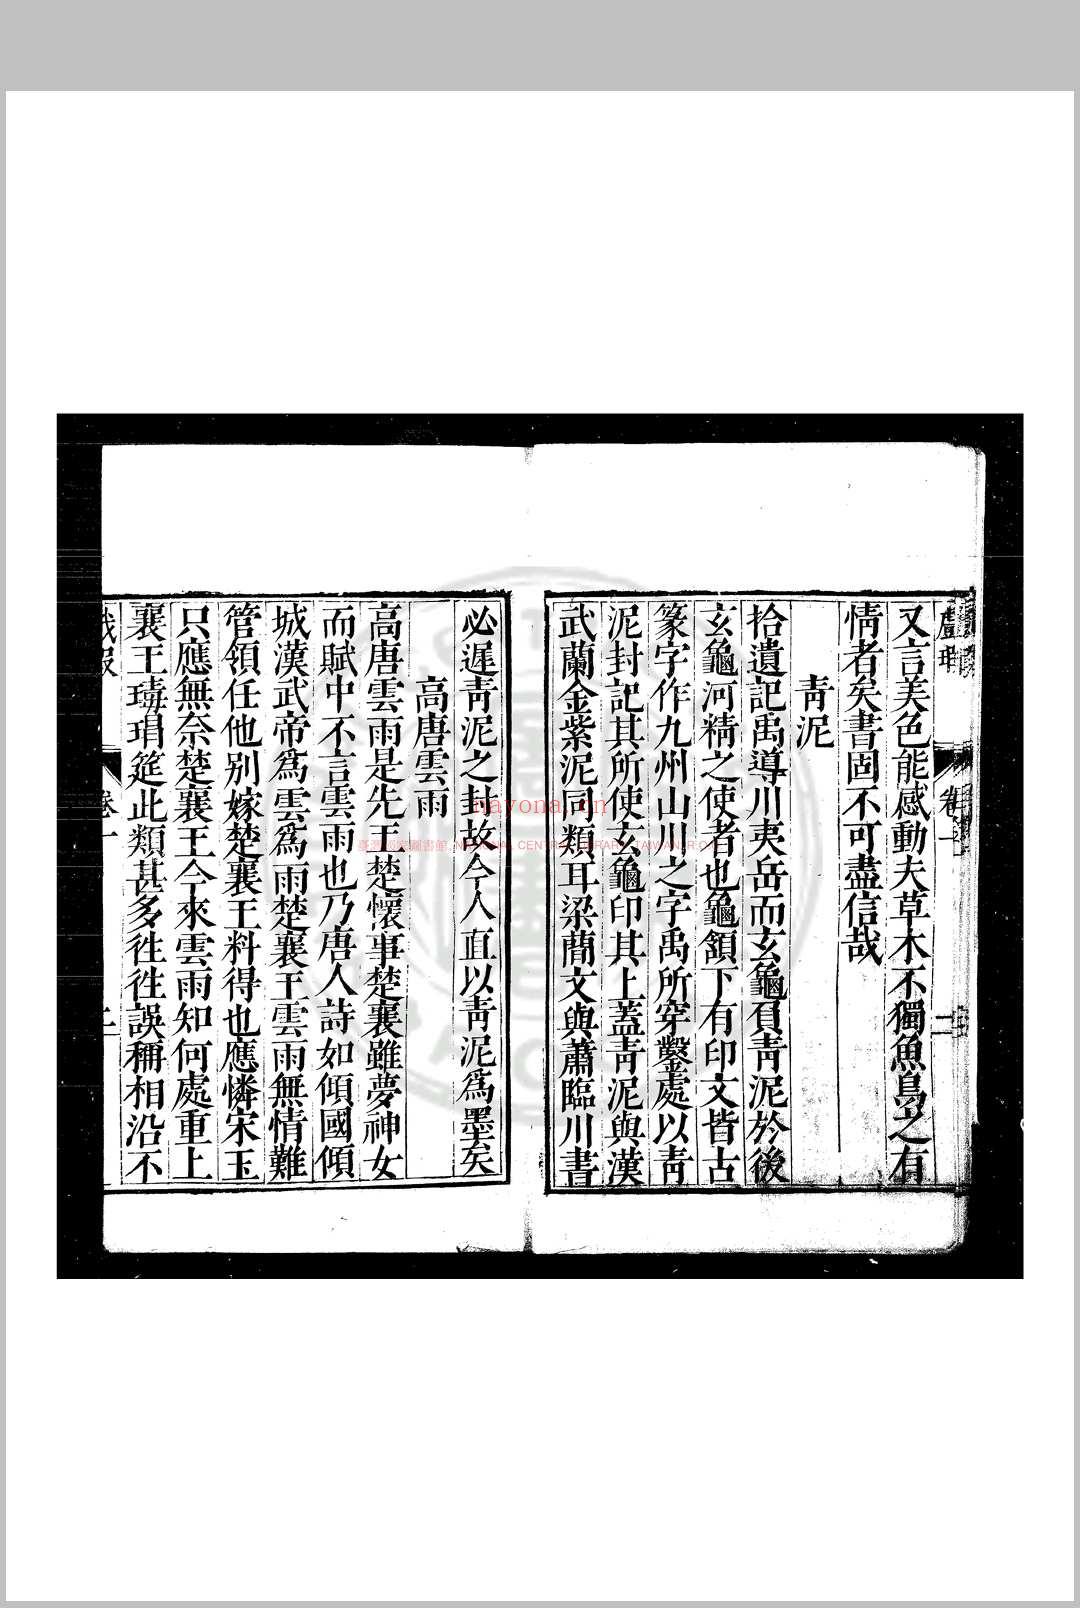 又言美色能感動夫草木不獨魚鳥之有
情者矣書固不可盡信哉
青泥
拾遺記禹導川夷岳而玄龜負青泥於後
玄龜河精之使者也龜頷下有印文皆古
篆字作九州山川之字禹所穿鑿處以青
泥封記其所使玄龜印其上蓋青泥與漢
武蘭金紫泥同類耳梁簡文與蕭臨川書
必遲青泥之封故今人直以青泥爲墨矣
高唐雲雨
高唐雲雨是先王楚懷事楚襄雖夢神女
而賦中不言雲雨也乃唐人詩如傾國傾
城漢武帝爲雲爲雨楚襄王雲雨無情難
管領任他別嫁楚襄王料得也應憐宋玉
只應無奈楚襄王今來雲雨知何處重上
襄王瑇瑁筵此類甚多徃徃誤稱相沿不
卷一
二
nayona.cn
臺灣國家圖書館, NATIONAL CENTRAL LIBRARY, TAIWAN, R.O.C